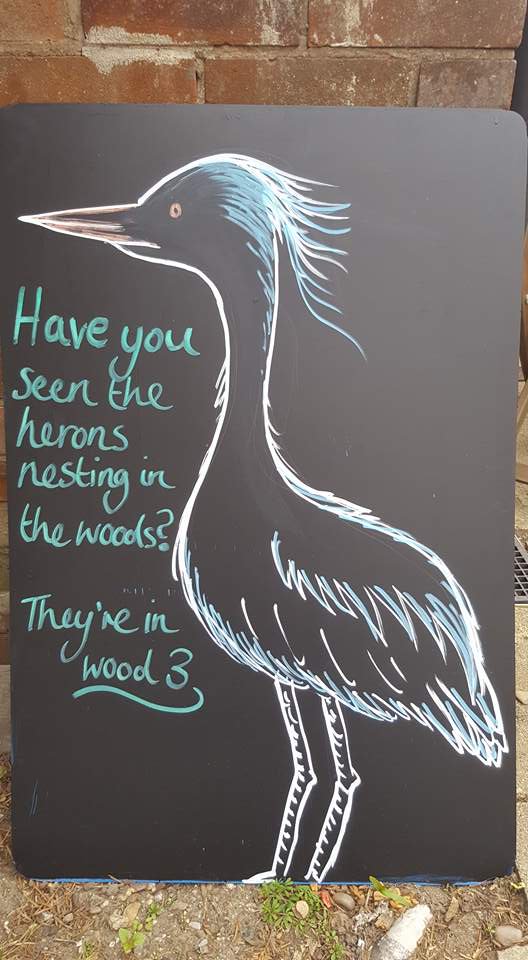 Have you
seen the
herons
nesting in
the woods?
They're in
wood 3